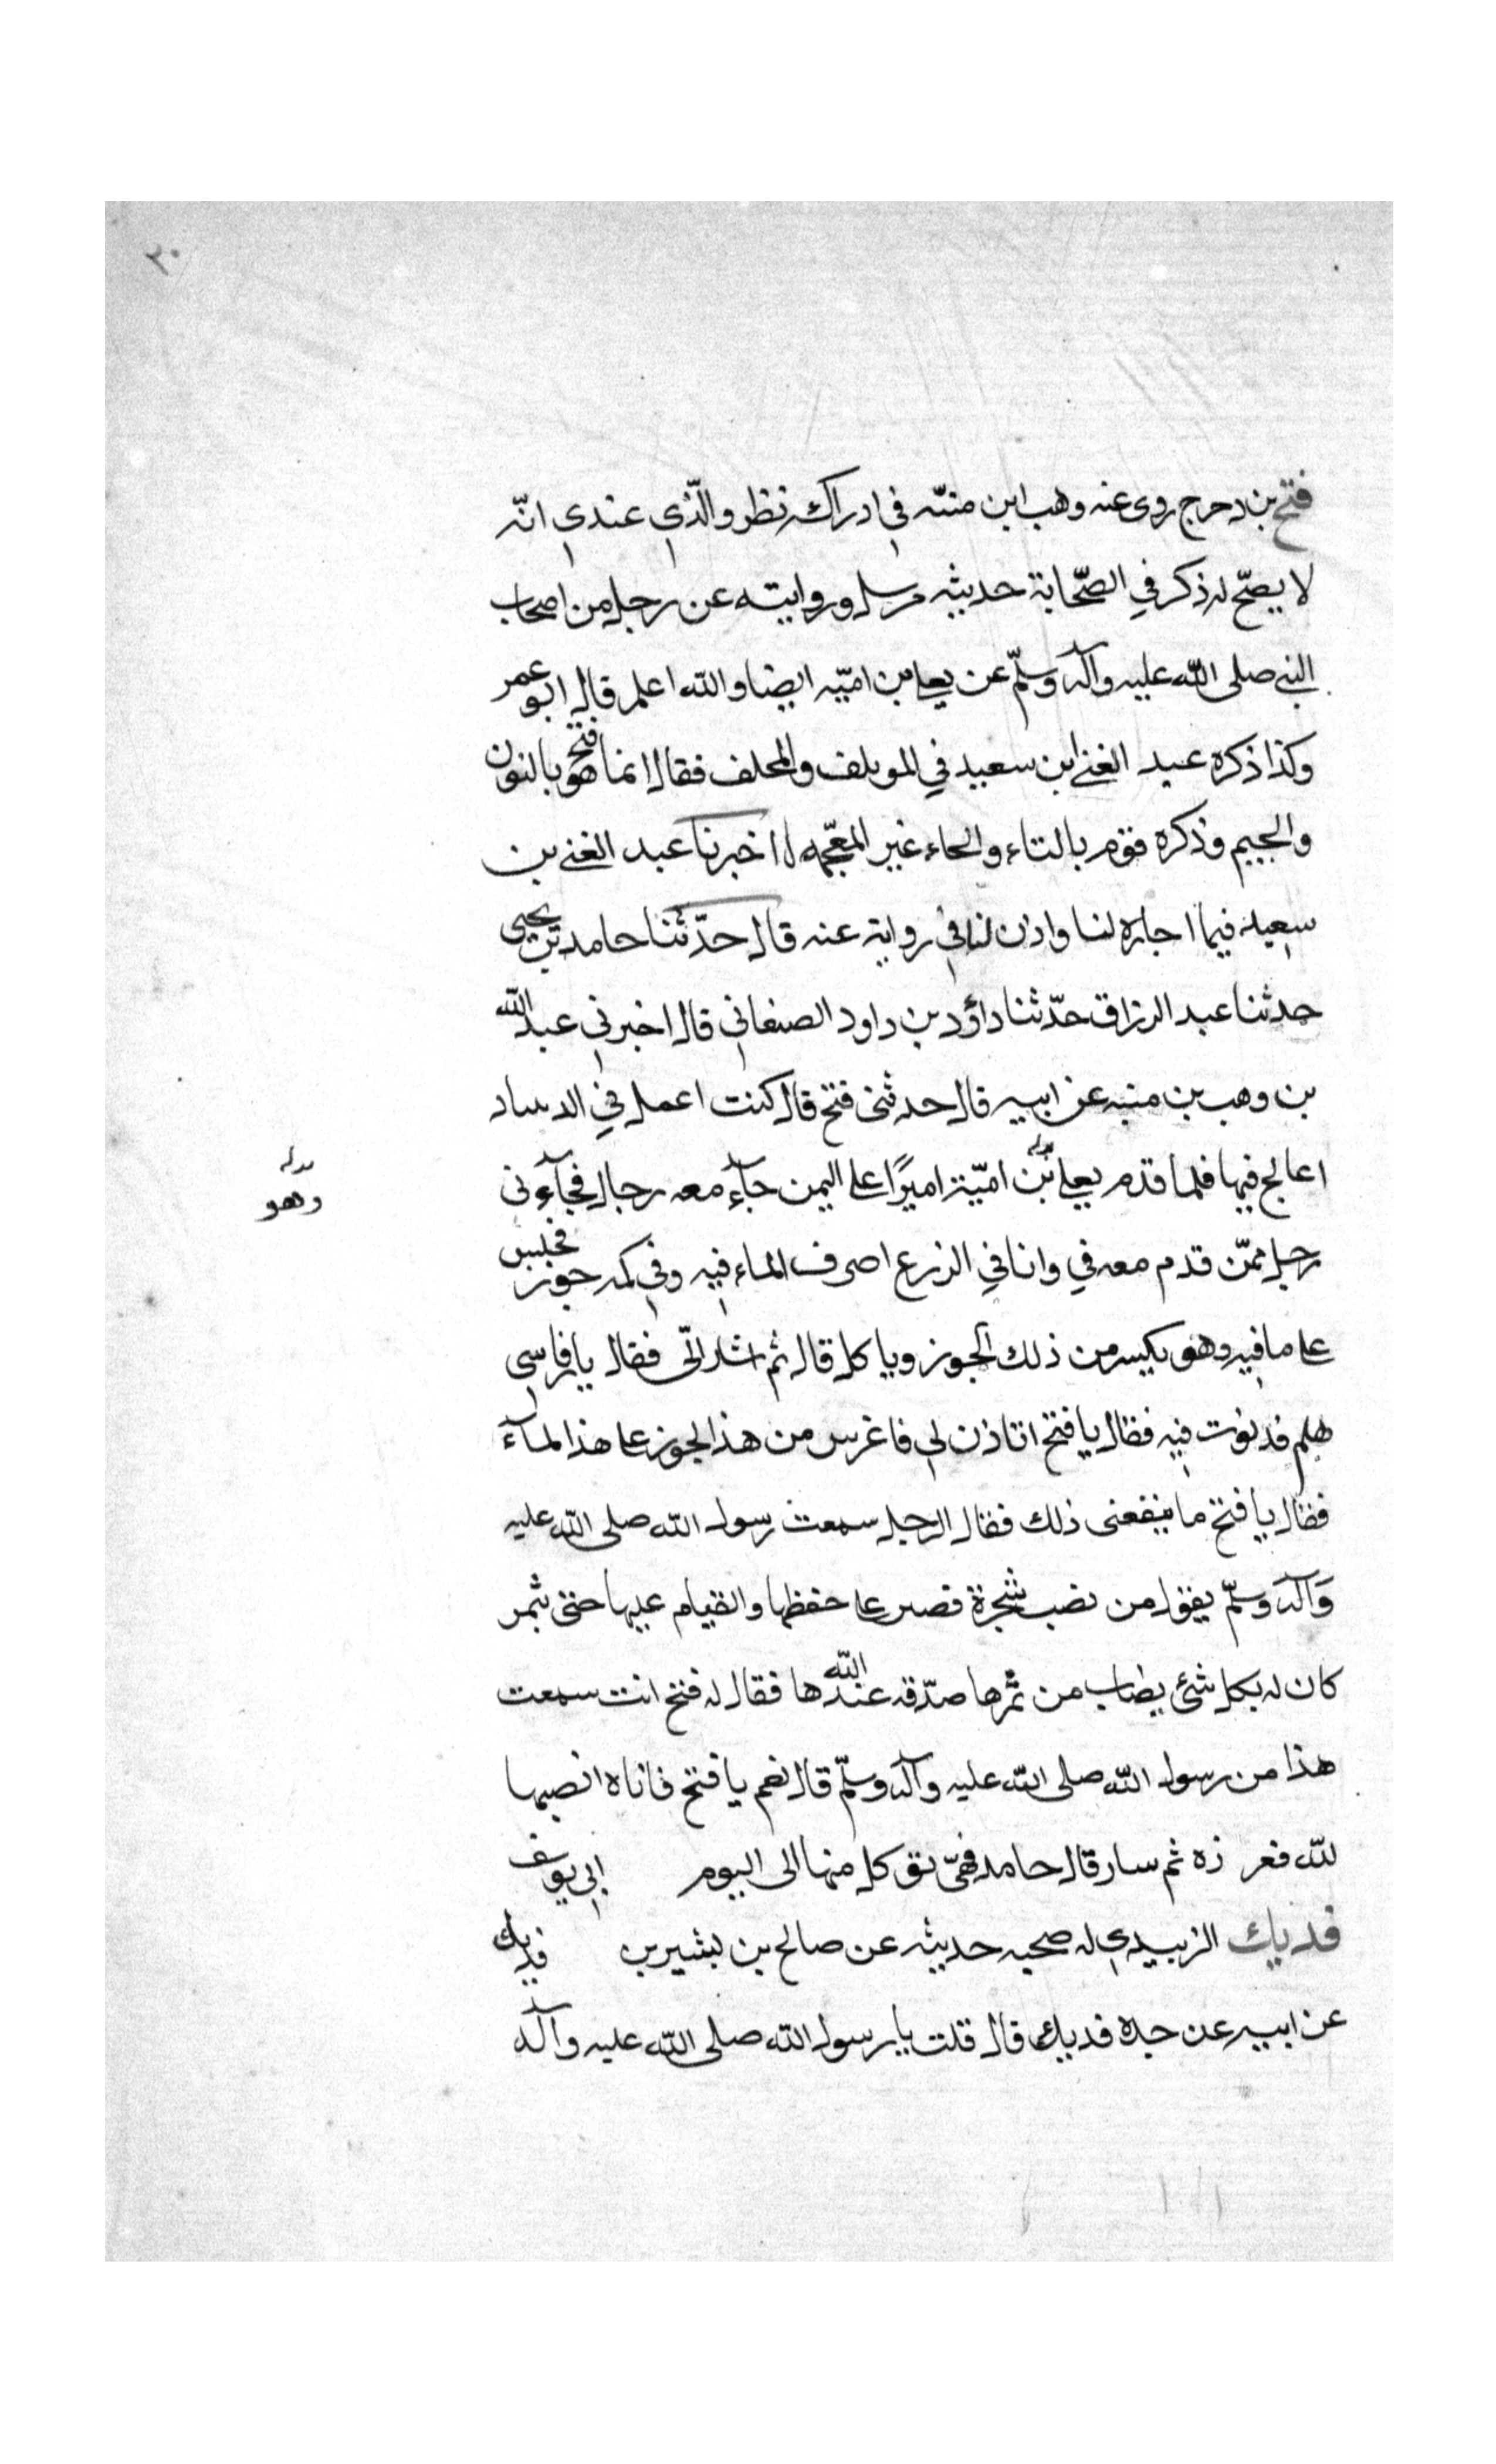 ٣٠
فتح بن دحرج روى عنه وهب ابن منبّه في ادراكه نظر والّذي عندي انّه
لا يصحّ له ذكر في الصّحابة حديثه مرسل وروايته عن رجل من اصحاب
النبي صلى اللّه عليه وآله وسلّم عن يعلى بن اميّه ايضا واللّه اعلم قال ابو عمر
وكذا ذكره عبد الغني ابن سعيد في الموتلف والمختلف فقال انما هو فتح بالنون
والجيم وذكره قوم بالتاء والحاء غير المعجّمه اخبرنا عبد الغني بن
سعيد فيما اجازه لنا واذن لنا في رواية عنه قال حدّثنا حامد بن يحيى
حدثنا عبد الرزاق حدّثنا داؤد بن داود الصنعاني قال اخبرني عبد اللّه
بن وهب بن منبه عن ابيه قال حدثنى فتح قال كنت اعمل في الدساد
اعالج فيها فلما قدم يعلى بن اميّة اميرًا على اليمن جآء معه رجال فجآءنى
وهو
رجل ممّن قدم معه في وانا في الزرع اصرف الماء فيه وفي كمه جوز فجلس
على ما فيه وهو يكسر من ذلك الجوز وياكل قال ثم اشار الىّ فقال يا فارسي
هلم فدنوت فيه فقال يا فتح اتاذن لي فاغرس من هذا الجوز على هذا المآء
فقال يا فتح ما ينفعنى ذلك فقال الرجل سمعت رسول اللّه صلى اللّه عليه
وآله وسلّم يقول من نصب شجرة فصبر على حفظها والقيام عليها حتى تثمر
كان له بكل شئ يصاب من ثمرها صدقه عند اللّه ها فقال له فتح انت سمعت
هذا من رسول اللّه صلى اللّه عليه وآله وسلّم قال نعم يا فتح فاناه انصبها
للّه فغر زه ثم سار قال حامد فهى تؤكل منها الى اليوم ابي يوسف
فديك الزبيدي له صحبه حديثه عن صالح بن بشير بن فديك
عن ابيه عن جده فديك قال قلت يا رسول اللّه صلى اللّه عليه وآله